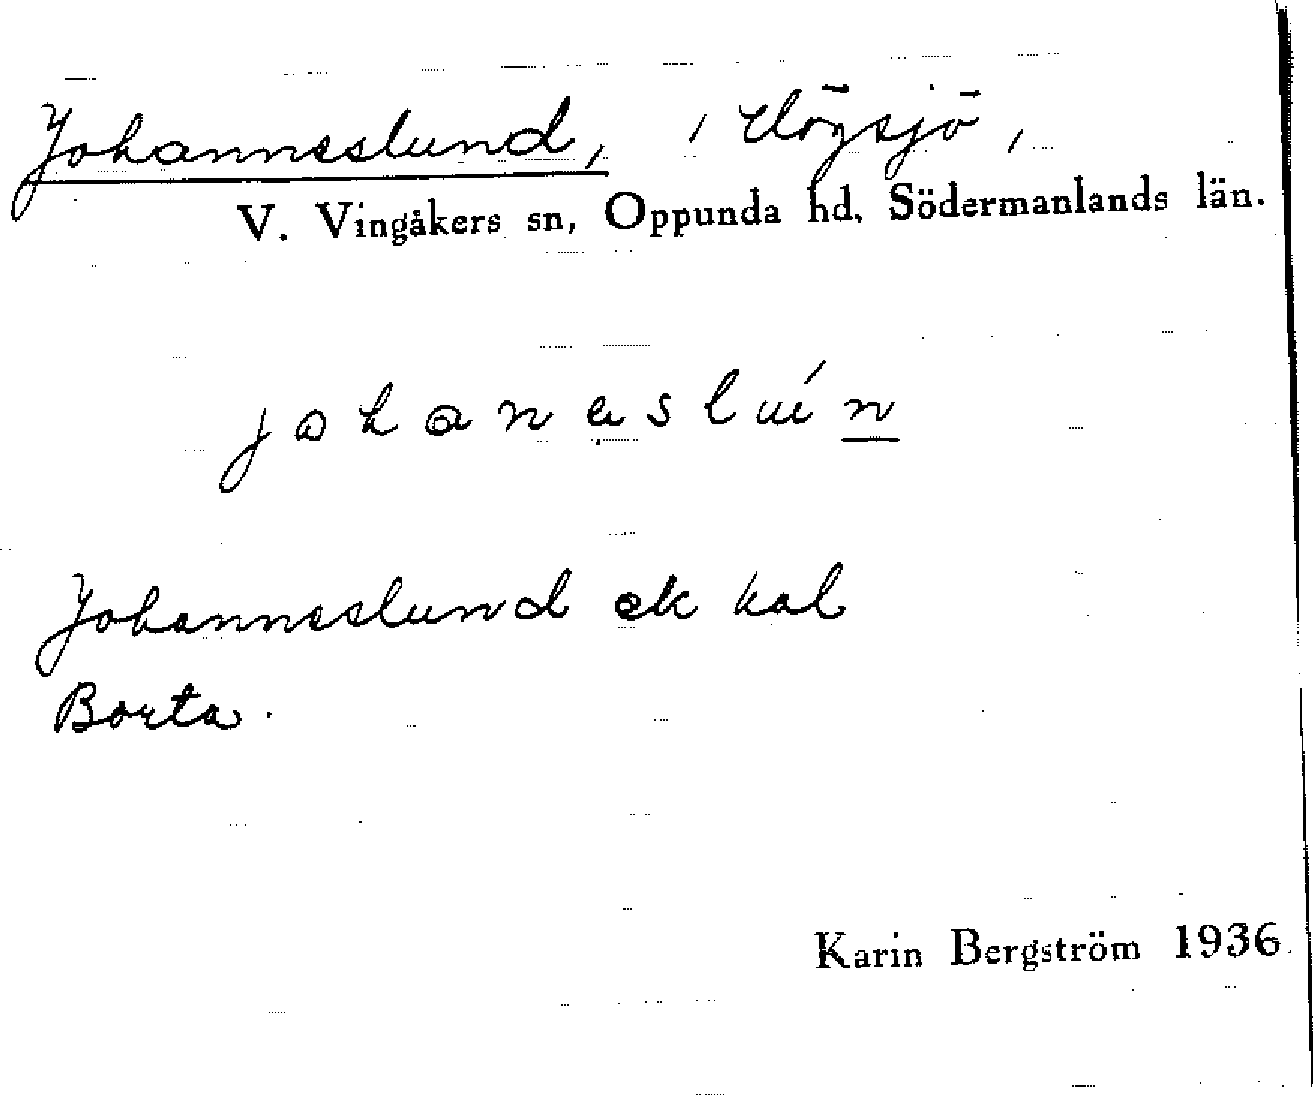 Johanneslund, i Högsjö,
V. Vingåkers sn, Oppunda hd, Södermanlands län.
johanaslún
Johanneslund ek kal
Borta.
Karin Bergström 1936